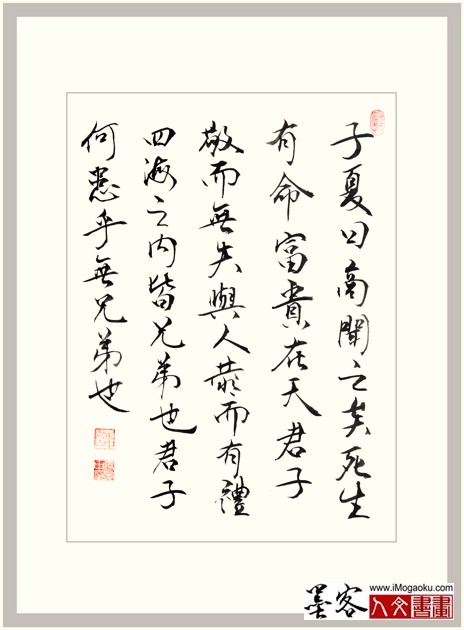 子夏曰商聞之矣死生
有命富貴在天君子
敬而無失與人恭而有禮
四海之内皆兄弟也君子
何患乎無兄弟也
墨客
www.iMogaoku.com
人文書畫